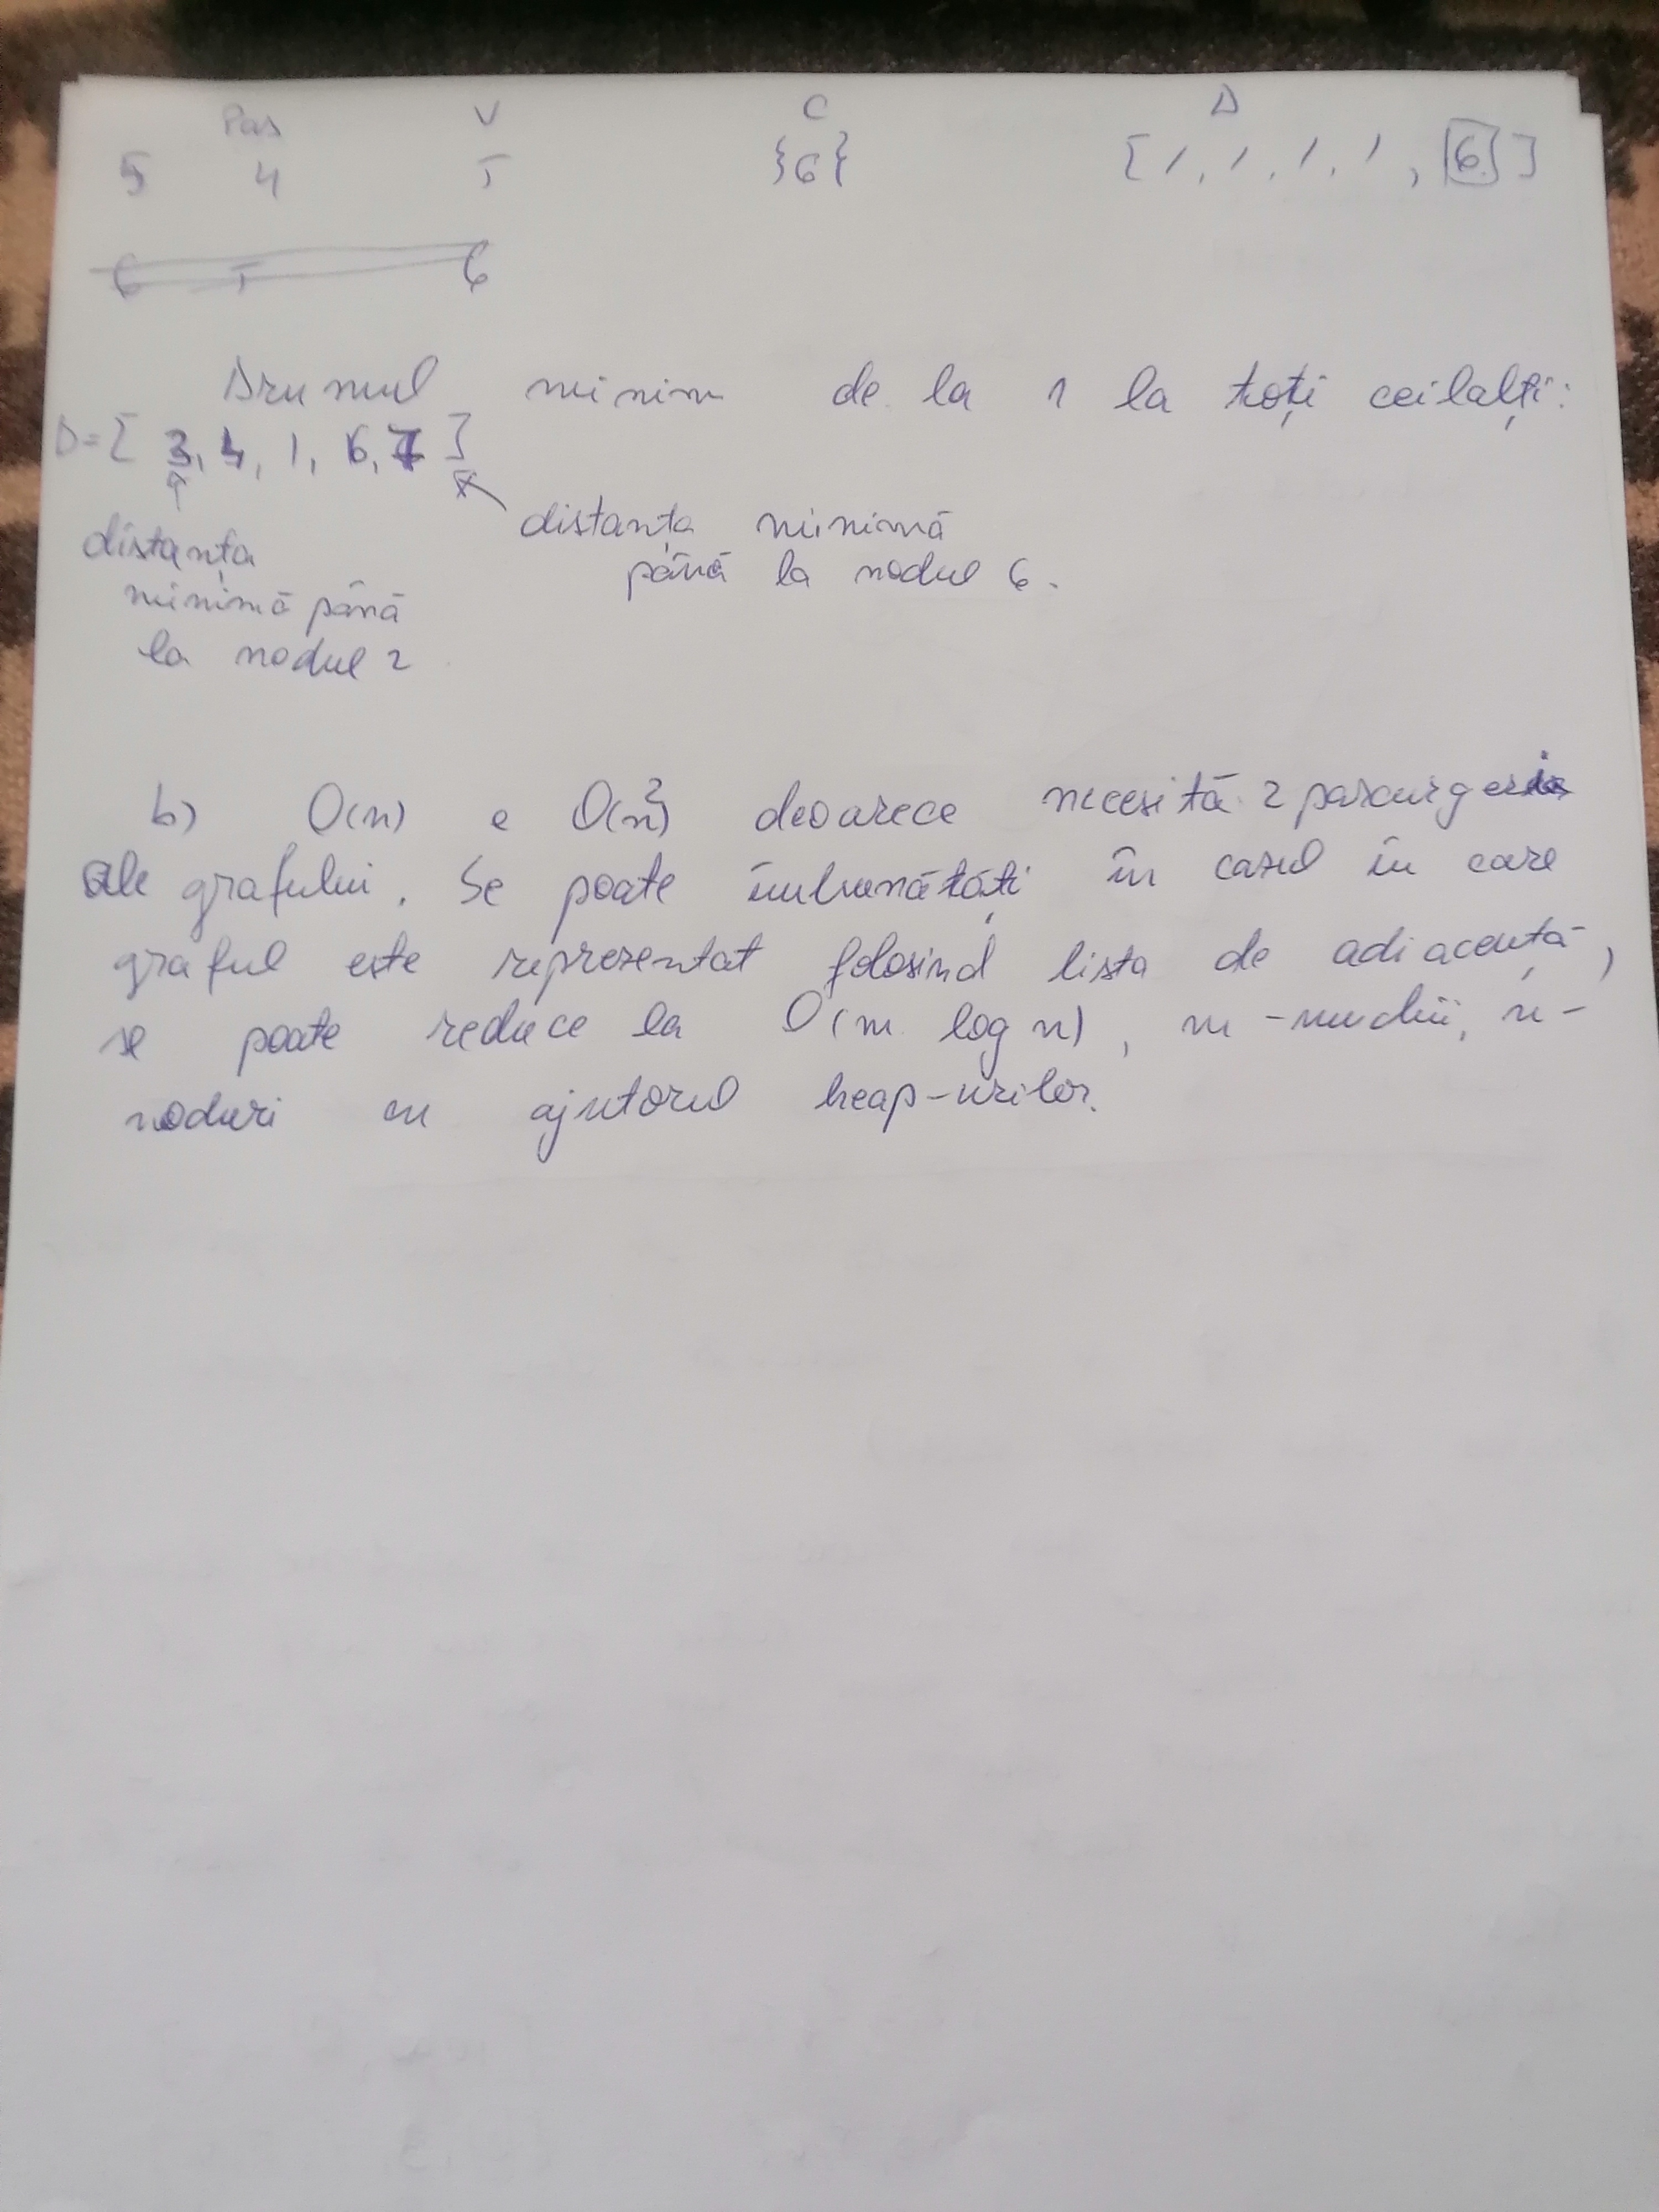 Pas V C D
5 4 5 {6} [/, /, /, /, 6]
6 5 6
Drumul minim de la 1 la toți ceilalți:
D=[3, 4, 1, 6, 7]
distanța minimă
până la nodul 6.
distanța
minimă până
la nodul 2
b) O(n) e O(n²) deoarece necesită 2 parcurgeri
ale grafului. Se poate îmbunătăți în cazul în care
graful este reprezentat folosind lista de adiacență,
se poate reduce la O(m log n), m - muchii, n -
noduri cu ajutorul heap-urilor.